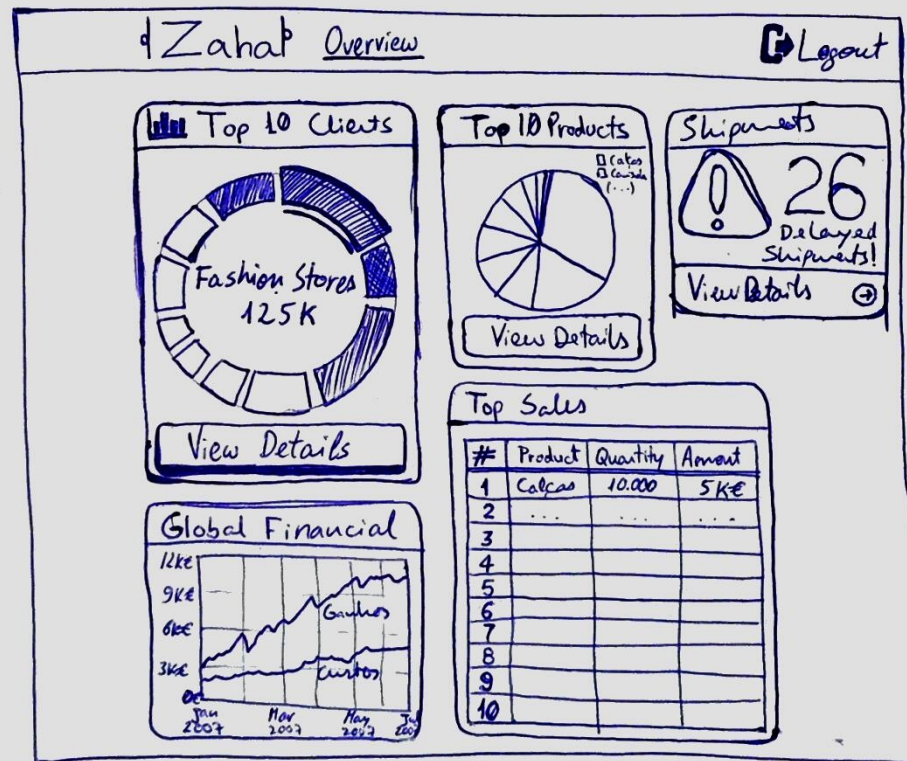 Zahal Overview
Logout
Top 10 Clients
Fashion Stores
125K
View Details
Top 10 Products
Calças
Camisola
(...)
View Details
Shipments
26
Delayed
Shipments!
View Details
Global Financial
12K€
9K€
6K€
3K€
0€
Ganhos
Custos
Jan
2007
Mar
2007
May
2007
2007
Top Sales
# Product Quantity Amount
1 Calças 10.000 5K€
2 ... ... ...
3
4
5
6
7
8
9
10